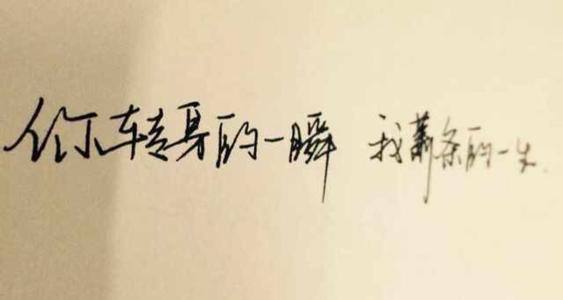 你转身的一瞬 我萧条的一生.